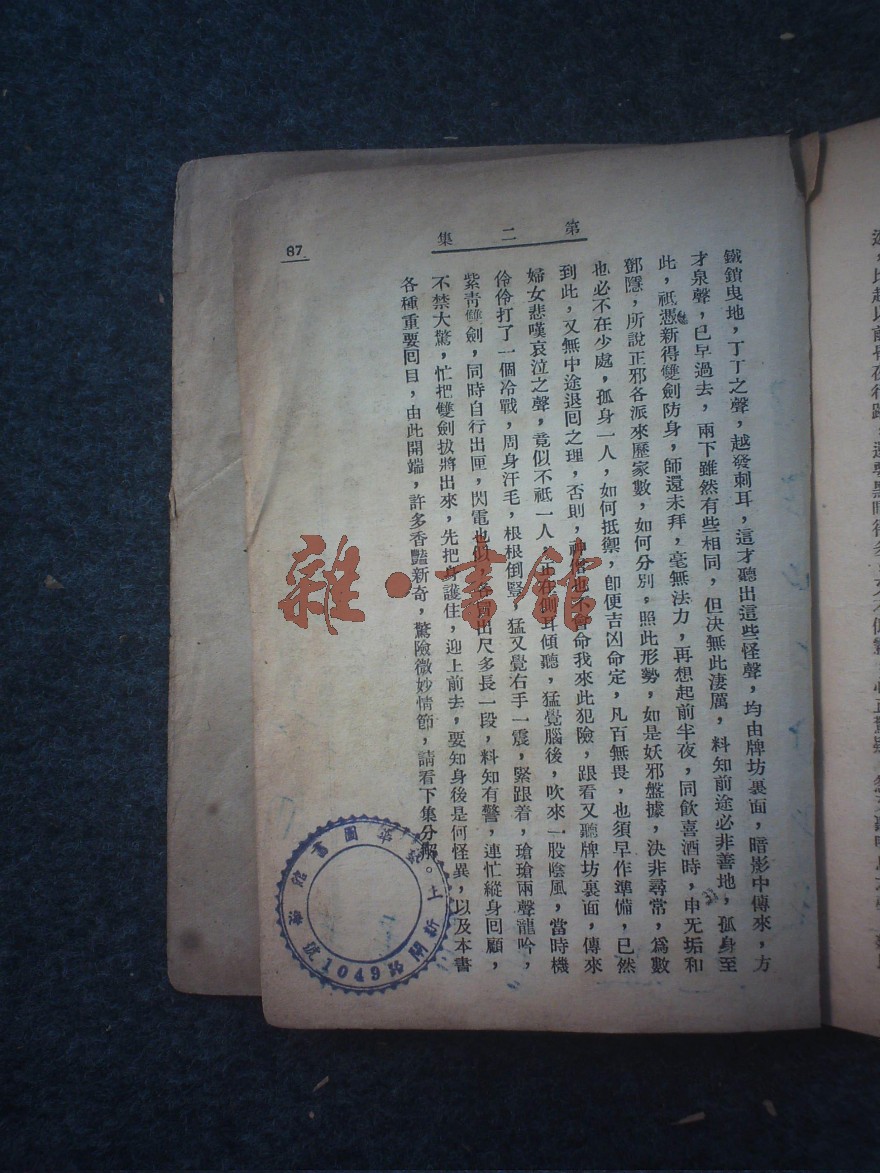 第二集
87
鐵鎖曳地，丁丁之聲，越發刺耳，這才聽出這些怪聲，均由牌坊裏面，暗影中傳來，方
才泉聲，已早過去，兩下雖然有些相同，但決無此淒厲，料知前途必非善地，孤身至
此，祇憑新得雙劍防身，師還未拜，毫無法力，再想起前半夜，同飲喜酒時，申无垢和
鄧隱，所說正邪各派來歷家數，如何分別，照此形勢，如是妖邪盤據，決非尋常，爲數
也必不在少處，孤身一人，如何抵禦，卽便吉凶命定，凡百無畏，也須早作準備，已然
到此，又無中途退囘之理，否則，也不會命我來此犯險，跟看又聽牌坊裏面，傳來
婦女悲嘆哀泣之聲，竟似不祇一人，正在側耳傾聽，猛覺腦後，吹來一股陰風，當時機
伶伶打了一個冷戰，周身汗毛，根根倒豎，猛又覺右手一震，緊跟着，瑲瑲兩聲龍吟，
紫青雙劍，同時自行出匣，閃電也似，各冒出尺多長一段，料知有警，連忙縱身回顧，
不禁大驚，忙把雙劍拔將出來，先把身護住，迎上前去，要知身後是何怪異，以及本書
各種重要囘目，由此開端，許多香豔新奇，驚險微妙情節，請看下集分解。
雜·書館
圖書館
新閘路1049號